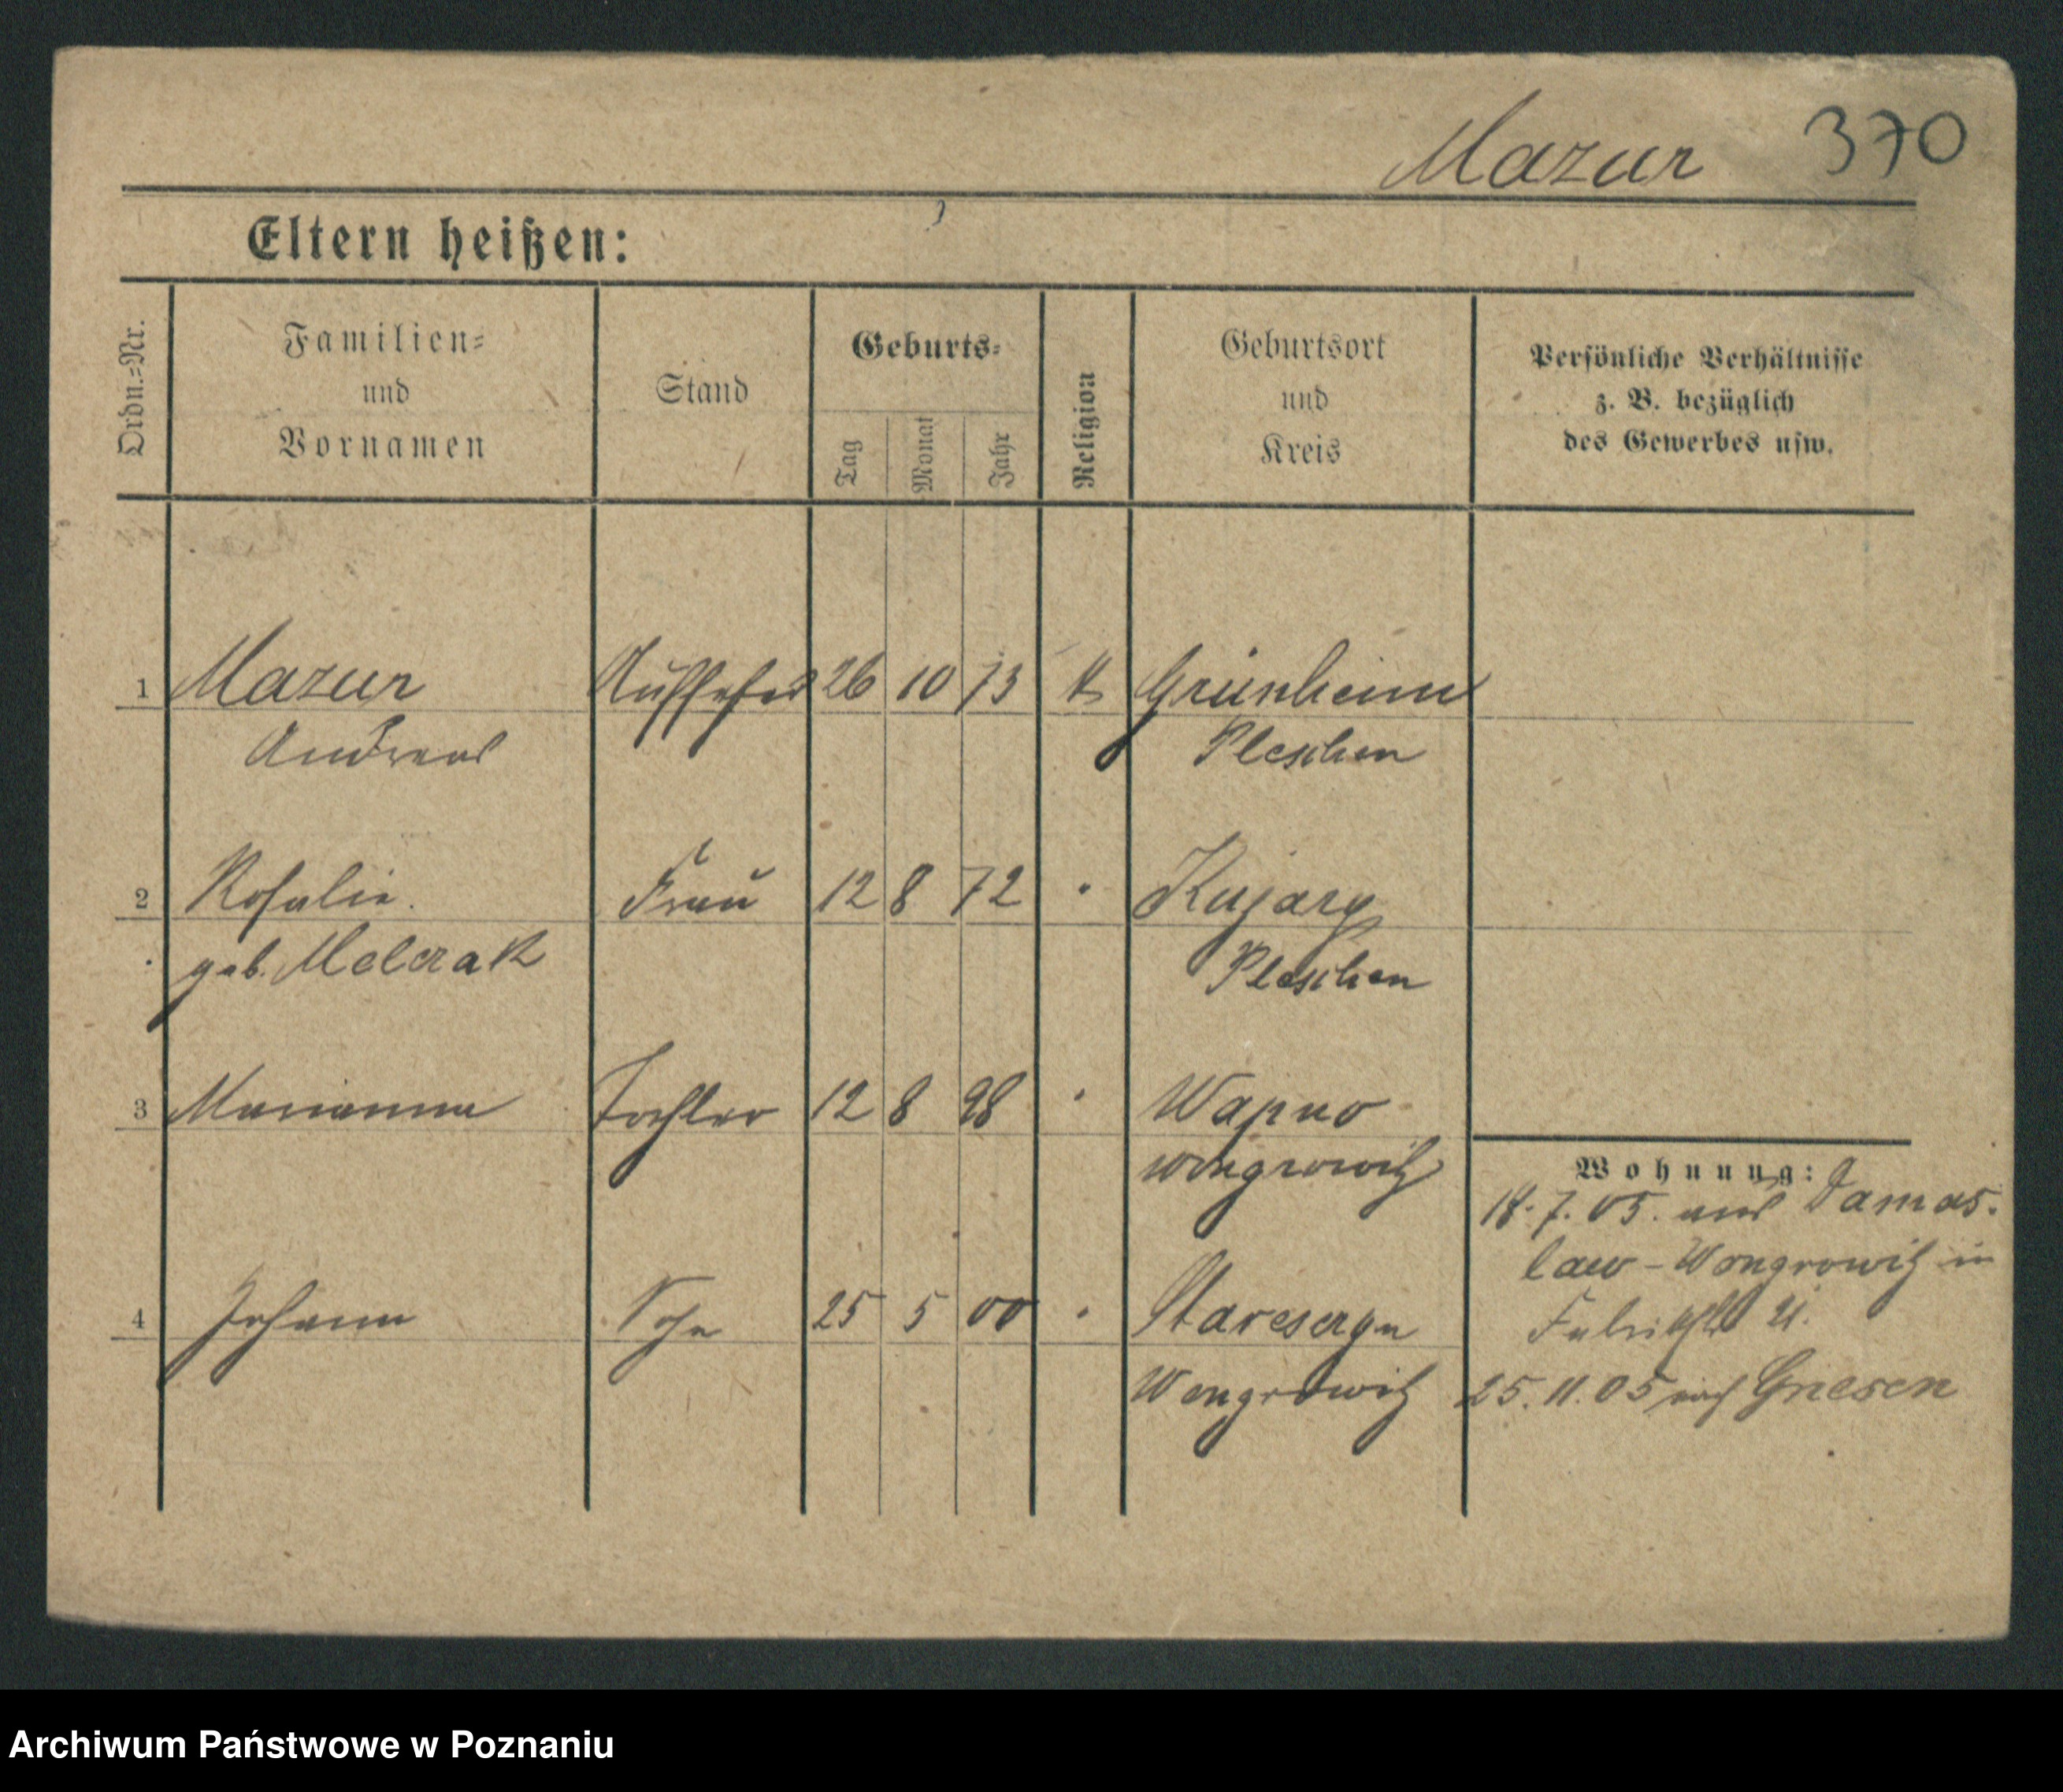 Mazur 370
Eltern heißen:
Ordn.=Nr.
Familien=
und
Vornamen
Stand
Geburts=
Tag Monat Jahr
Religion
Geburtsort
und
Kreis
Persönliche Verhältnisse
z. B. bezüglich
des Gewerbes usw.
1 Mazur Aufseher 26 10 73 K Grünheim
Andreas Pleschen
2 Rosalie. Frau 12 8 72 " Kujary
geb. Melcrak Pleschen
3 Marianna Tochter 12 8 98 " Wapno
Wongrowitz
4 Johann Sohn 25 5 00 "
Wongrowitz
Wohnung:
18.7.05. aus Damas-
law-Wongrowitz in
25.11.05 nach Gnesen
Archiwum Państwowe w Poznaniu